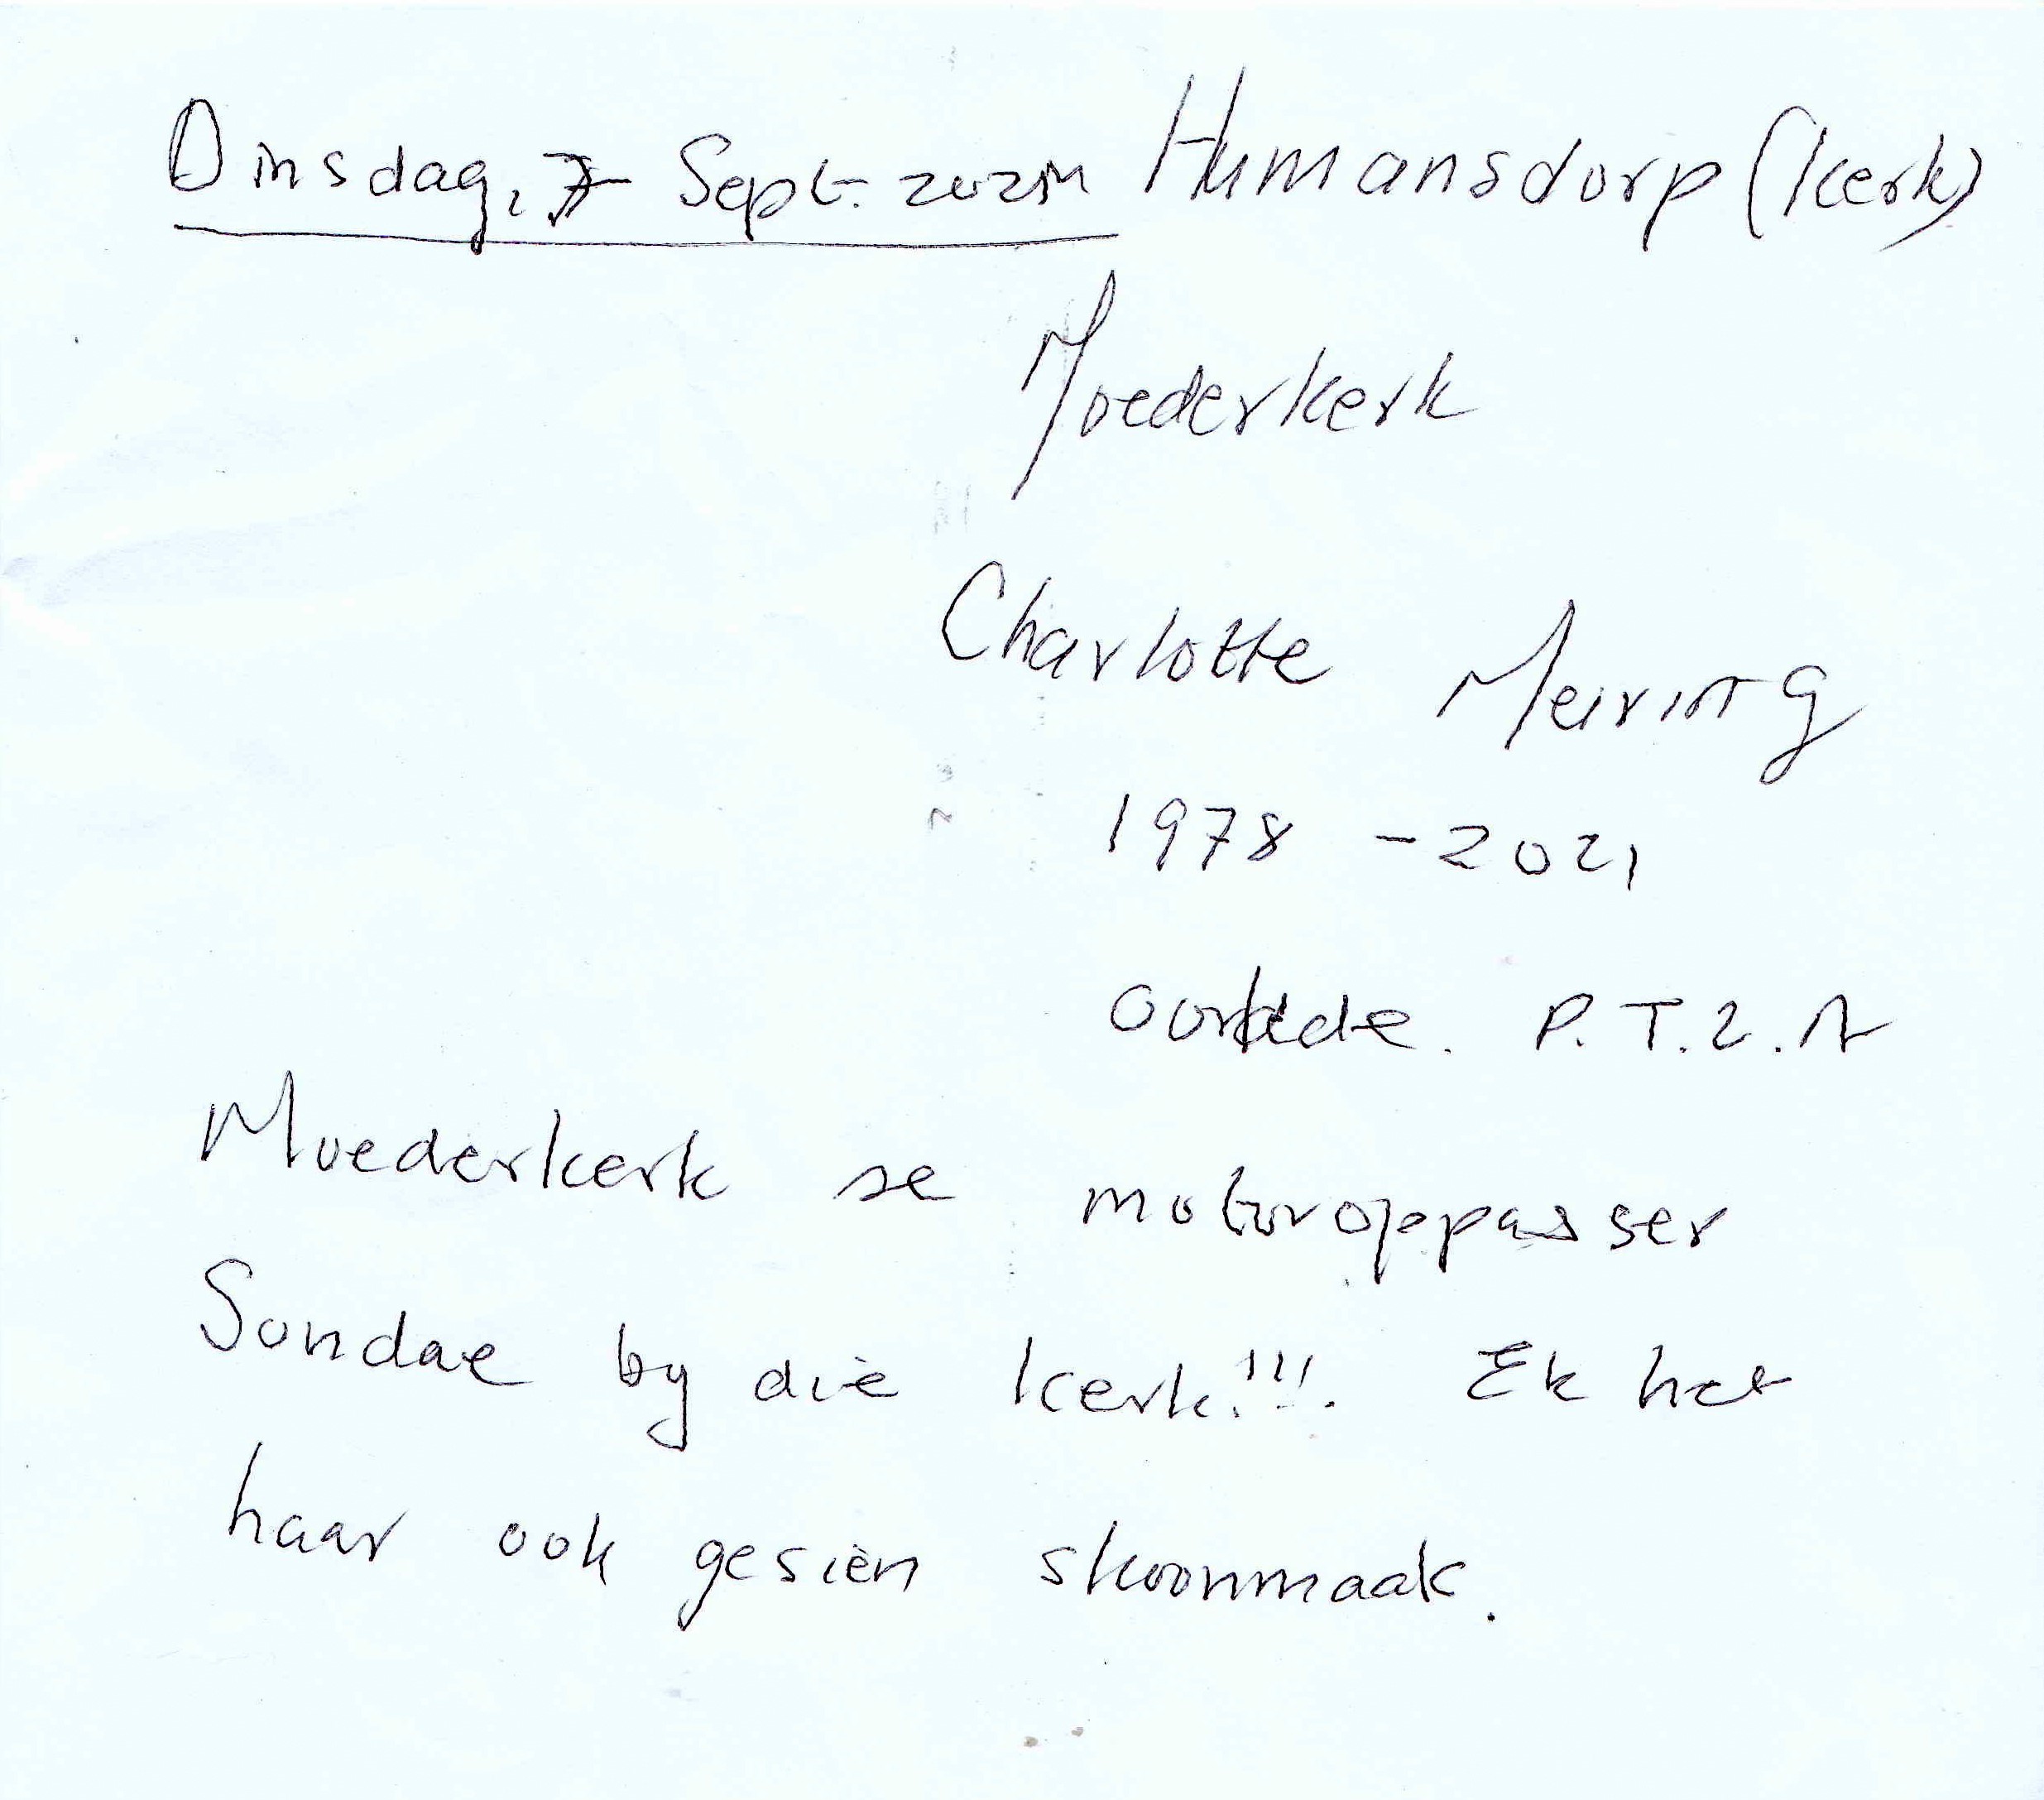 Dinsdag, 7 Sept. 2021 Humansdorp (Kerk)
Moederkerk
Charlotte Meiring
1978 - 2021
P.T.2.A
Moederkerk se motoroppasser
Sondae by die kerk!!!. Ek het
haar ook gesien skoonmaak.